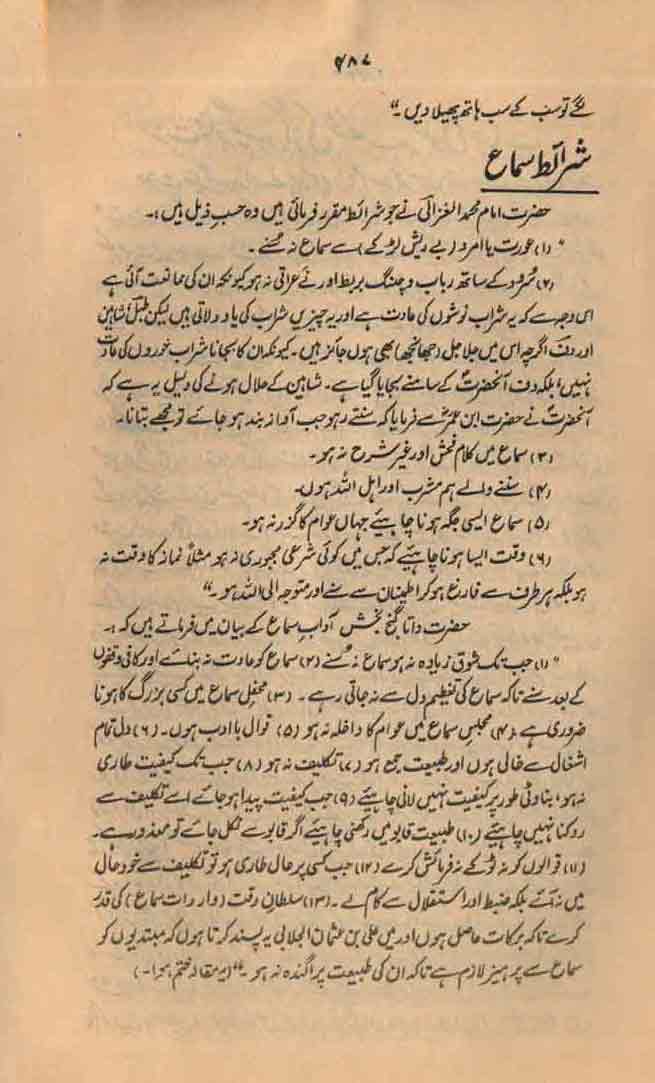 ۴۸۷
لگے تو سب کے سب ہاتھ پھیلا دیں۔"
شرائط سماع
حضرت امام محمد الغزالیؒ نے جو شرائط مقرر فرمائی ہیں وہ حسبِ ذیل ہیں:۔
"(۱) عورت یا امرد (بے ریش لڑکے) سے سماع نہ سُنے۔
(۲) سُرود کے ساتھ رباب و چنگ بربط اور نے عراقی نہ ہو کیونکہ ان کی ممانعت آئی ہے
اس وجہ سے کہ یہ شراب نوشوں کی عادت ہے اور یہ چیزیں شراب کی یاد دلاتی ہیں لیکن طبل، شاہین
اور دف اگرچہ اس میں جلاجل (جھانجھ) بھی ہوں جائز ہیں۔ کیونکہ ان کا بجانا شراب خوروں کی عادت
نہیں، بلکہ دف آنحضرتؐ کے سامنے بجایا گیا ہے۔ شاہین کے حلال ہونے کی دلیل یہ ہے کہ
آنحضرتؐ نے حضرت ابن عمرؓ سے فرمایا کہ سنتے رہو جب آواز بند ہو جائے تو مجھے بتانا۔
(۳) سماع میں کلام فحش اور غیر شرح نہ ہو۔
(۴) سننے والے ہم مشرب اور اہل اللہ ہوں۔
(۵) سماع ایسی جگہ ہونا چاہیئے جہاں عوام کا گزر نہ ہو۔
(۶) وقت ایسا ہونا چاہیئے کہ جس میں کوئی شرعی مجبوری نہ ہو مثلاً نماز کا وقت نہ
ہو بلکہ ہر طرف سے فارغ ہو کر اطمینان سے سنے اور متوجہ الی اللہ ہو۔"
حضرت داتا گنج بخش آداب سماع کے بیان میں فرماتے ہیں کہ:۔
"(۱) جب تک شوق زیادہ نہ ہو سماع نہ سُنے (۲) سماع کو عادت نہ بنائے اور کافی وقفوں
کے بعد سنے تاکہ سماع کی تعظیم دل سے نہ جاتی رہے۔ (۳) محفلِ سماع میں کسی بزرگ کا ہونا
ضروری ہے (۴) مجلسِ سماع میں عوام کا داخلہ نہ ہو (۵) قوال باادب ہوں۔ (۶) دل تمام
اشغال سے خالی ہوں اور طبیعت جمع ہو (۷) تکلیف نہ ہو (۸) جب تک کیفیت طاری
نہ ہو، بناوٹی طور پر کیفیت نہیں لانی چاہیئے (۹) جب کیفیت پیدا ہو جائے اسے تکلیف سے
روکنا نہیں چاہیئے (۱۰) طبیعت قابو میں رکھنی چاہیئے اگر قابو سے نکل جائے تو معذور ہے۔
(۱۱) قوالوں کو نہ ٹوکے نہ فرمائش کرے (۱۲) جب کسی پر حال طاری ہو تو تکلیف سے خود حال
میں نہ آئے بلکہ ضبط اور استقلال سے کام لے۔ (۱۳) سلطانِ وقت (واردات سماع) کی قدر
کرے تاکہ برکات حاصل ہوں اور میں علی بن عثمان الجلابی یہ پسند کرتا ہوں کہ مبتدیوں کو
سماع سے پرہیز لازم ہے تاکہ ان کی طبیعت پراگندہ نہ ہو۔" (یہ مقالہ ختم ہوا۔)